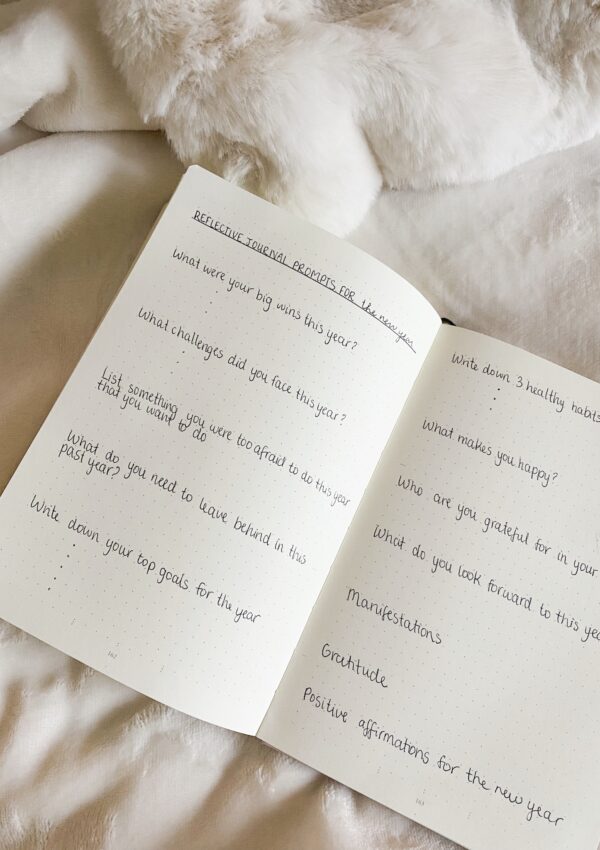 REFLECTIVE JOURNAL PROMPTS FOR the new year
What were your big wins this year?
What challenges did you face this year?
List something you were too afraid to do this year
that you want to do
What do you need to leave behind in this
past year?
Write down your top goals for the year
162
Write down 3 healthy habits
What makes you happy?
Who are you grateful for in your
What do you look forward to this yea
Manifestations
Gratitude
Positive affirmations for the new year
163